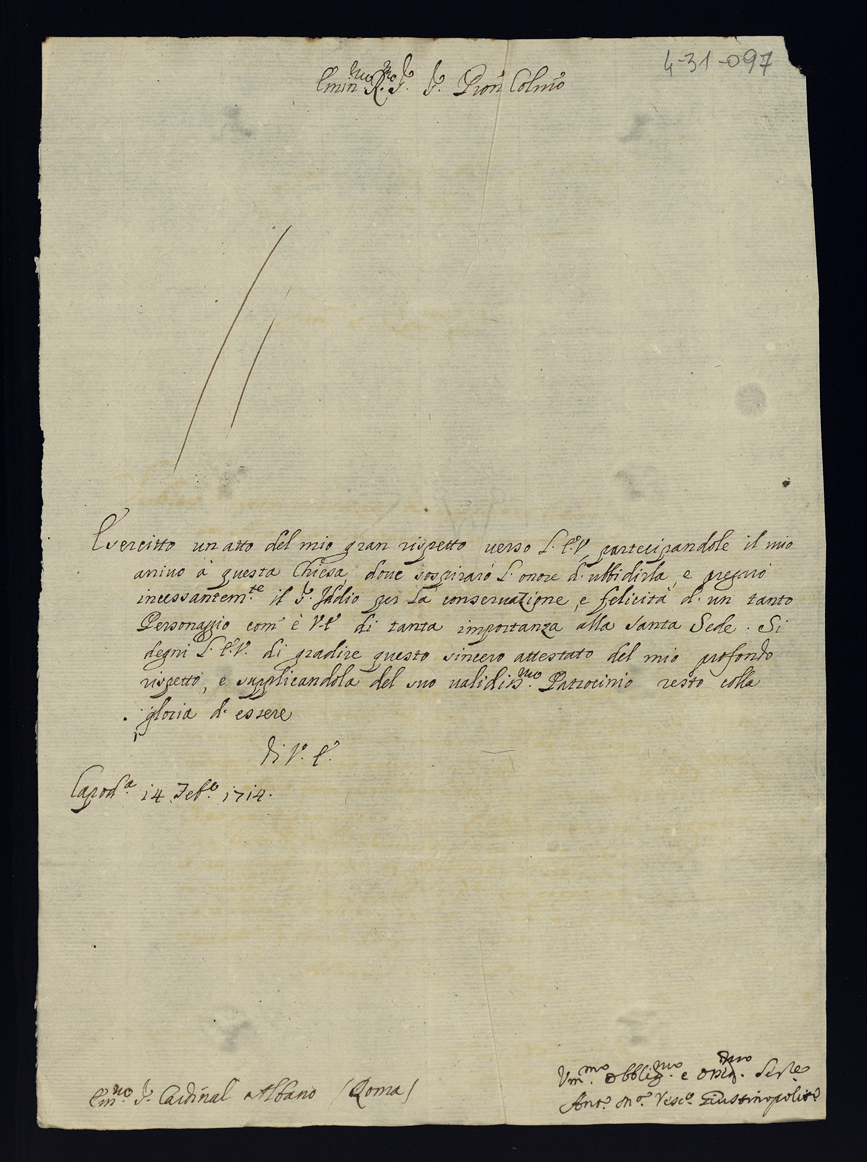 4-31-097
Emin.mo R.mo S. S. Pron Colmo
Esercitto un atto del mio gran rispetto verso L. E. V. partecipandole il mio
arivo à questa Chiesa, dove sospirarò l'onore d'ubbidirla, e pregarò
incessantem.te il S. Iddio per la conservazione, e felicità d'un tanto
Personaggio com'è V. E. di tanta importanza alla Santa Sede. Si
degni L. E. V. di gradire questo sincero attestato del mio profondo
rispetto, e supplicandola del suo validiss.mo Patrocinio resto colla
gloria d'essere
Di V. E.
Capod.a 14 Feb.o 1714.
Em.mo S. Cardinal Albano (Roma)
Um.mo Obblig.mo e Oss.mo Ser.e
Ant.o M.a Vesc.o Giustinopolit.o